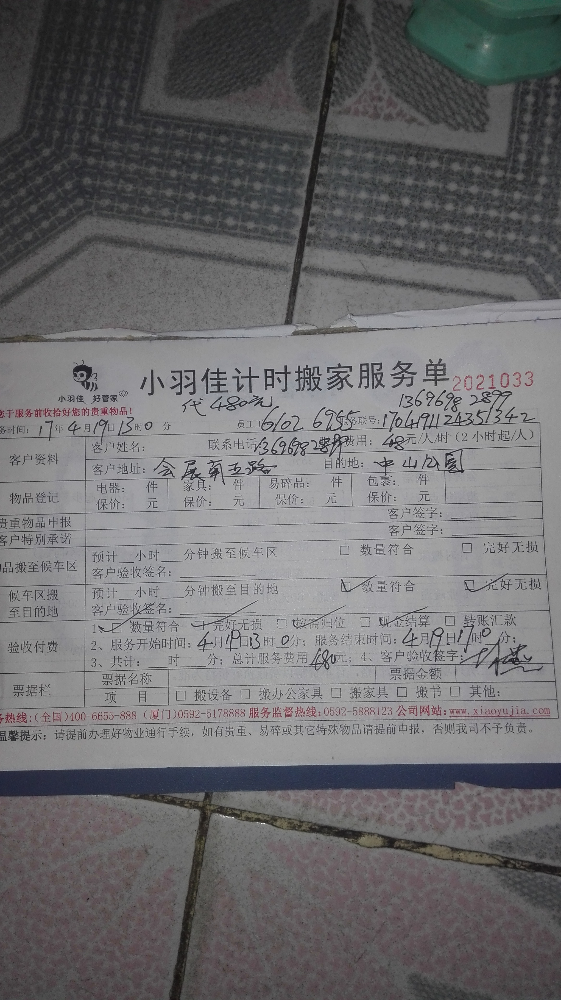 小羽佳 好管家
小羽佳计时搬家服务单 2021033
13696982899
代480元
您于服务前收拾好您的贵重物品!
务时间: 17年4月19日13时0分 员工 6102 6955 联号: 1704191124351342
客户资料 客户姓名: 联系电话 13696982899 费用: 48元/人/时(2小时起/人)
客户地址: 会展南五路 目的地: 中山公园
物品登记 电器: 件 家具: 件 易碎品: 件 包裹: 件
保价: 元 保价: 元 保价: 元 保价: 元
贵重物品申报 客户签字:
客户特别承诺 客户签字:
品搬至候车区 预计 小时 分钟搬至候车区 □ 数量符合 □ 完好无损
客户验收签名:
候车区搬至目的地 预计 小时 分钟搬至目的地 ☑ 数量符合 ☑ 完好无损
客户验收签名:
验收付费 1、☑ 数量符合 ☑ 完好无损 ☑ 按需归位 ☑ 现金结算 □ 转账汇款
2、服务开始时间: 4月19日13时0分; 服务结束时间: 4月19日17时0分;
3、共计: 时 分; 总计服务费用 480元; 4、客户验收签字:
票据栏 票据名称 票据金额
项 目 □ 搬设备 □ 搬办公家具 □ 搬家具 □ 搬书 □ 其他:
务热线:(全国)400-6655-888 (厦门)0592-5178888 服务监督热线:0592-5888123 公司网站:www.xiaoyujia.com
温馨提示: 请提前办理好物业通行手续, 如有贵重、易碎或其它特殊物品请提前申报, 否则我司不予负责。